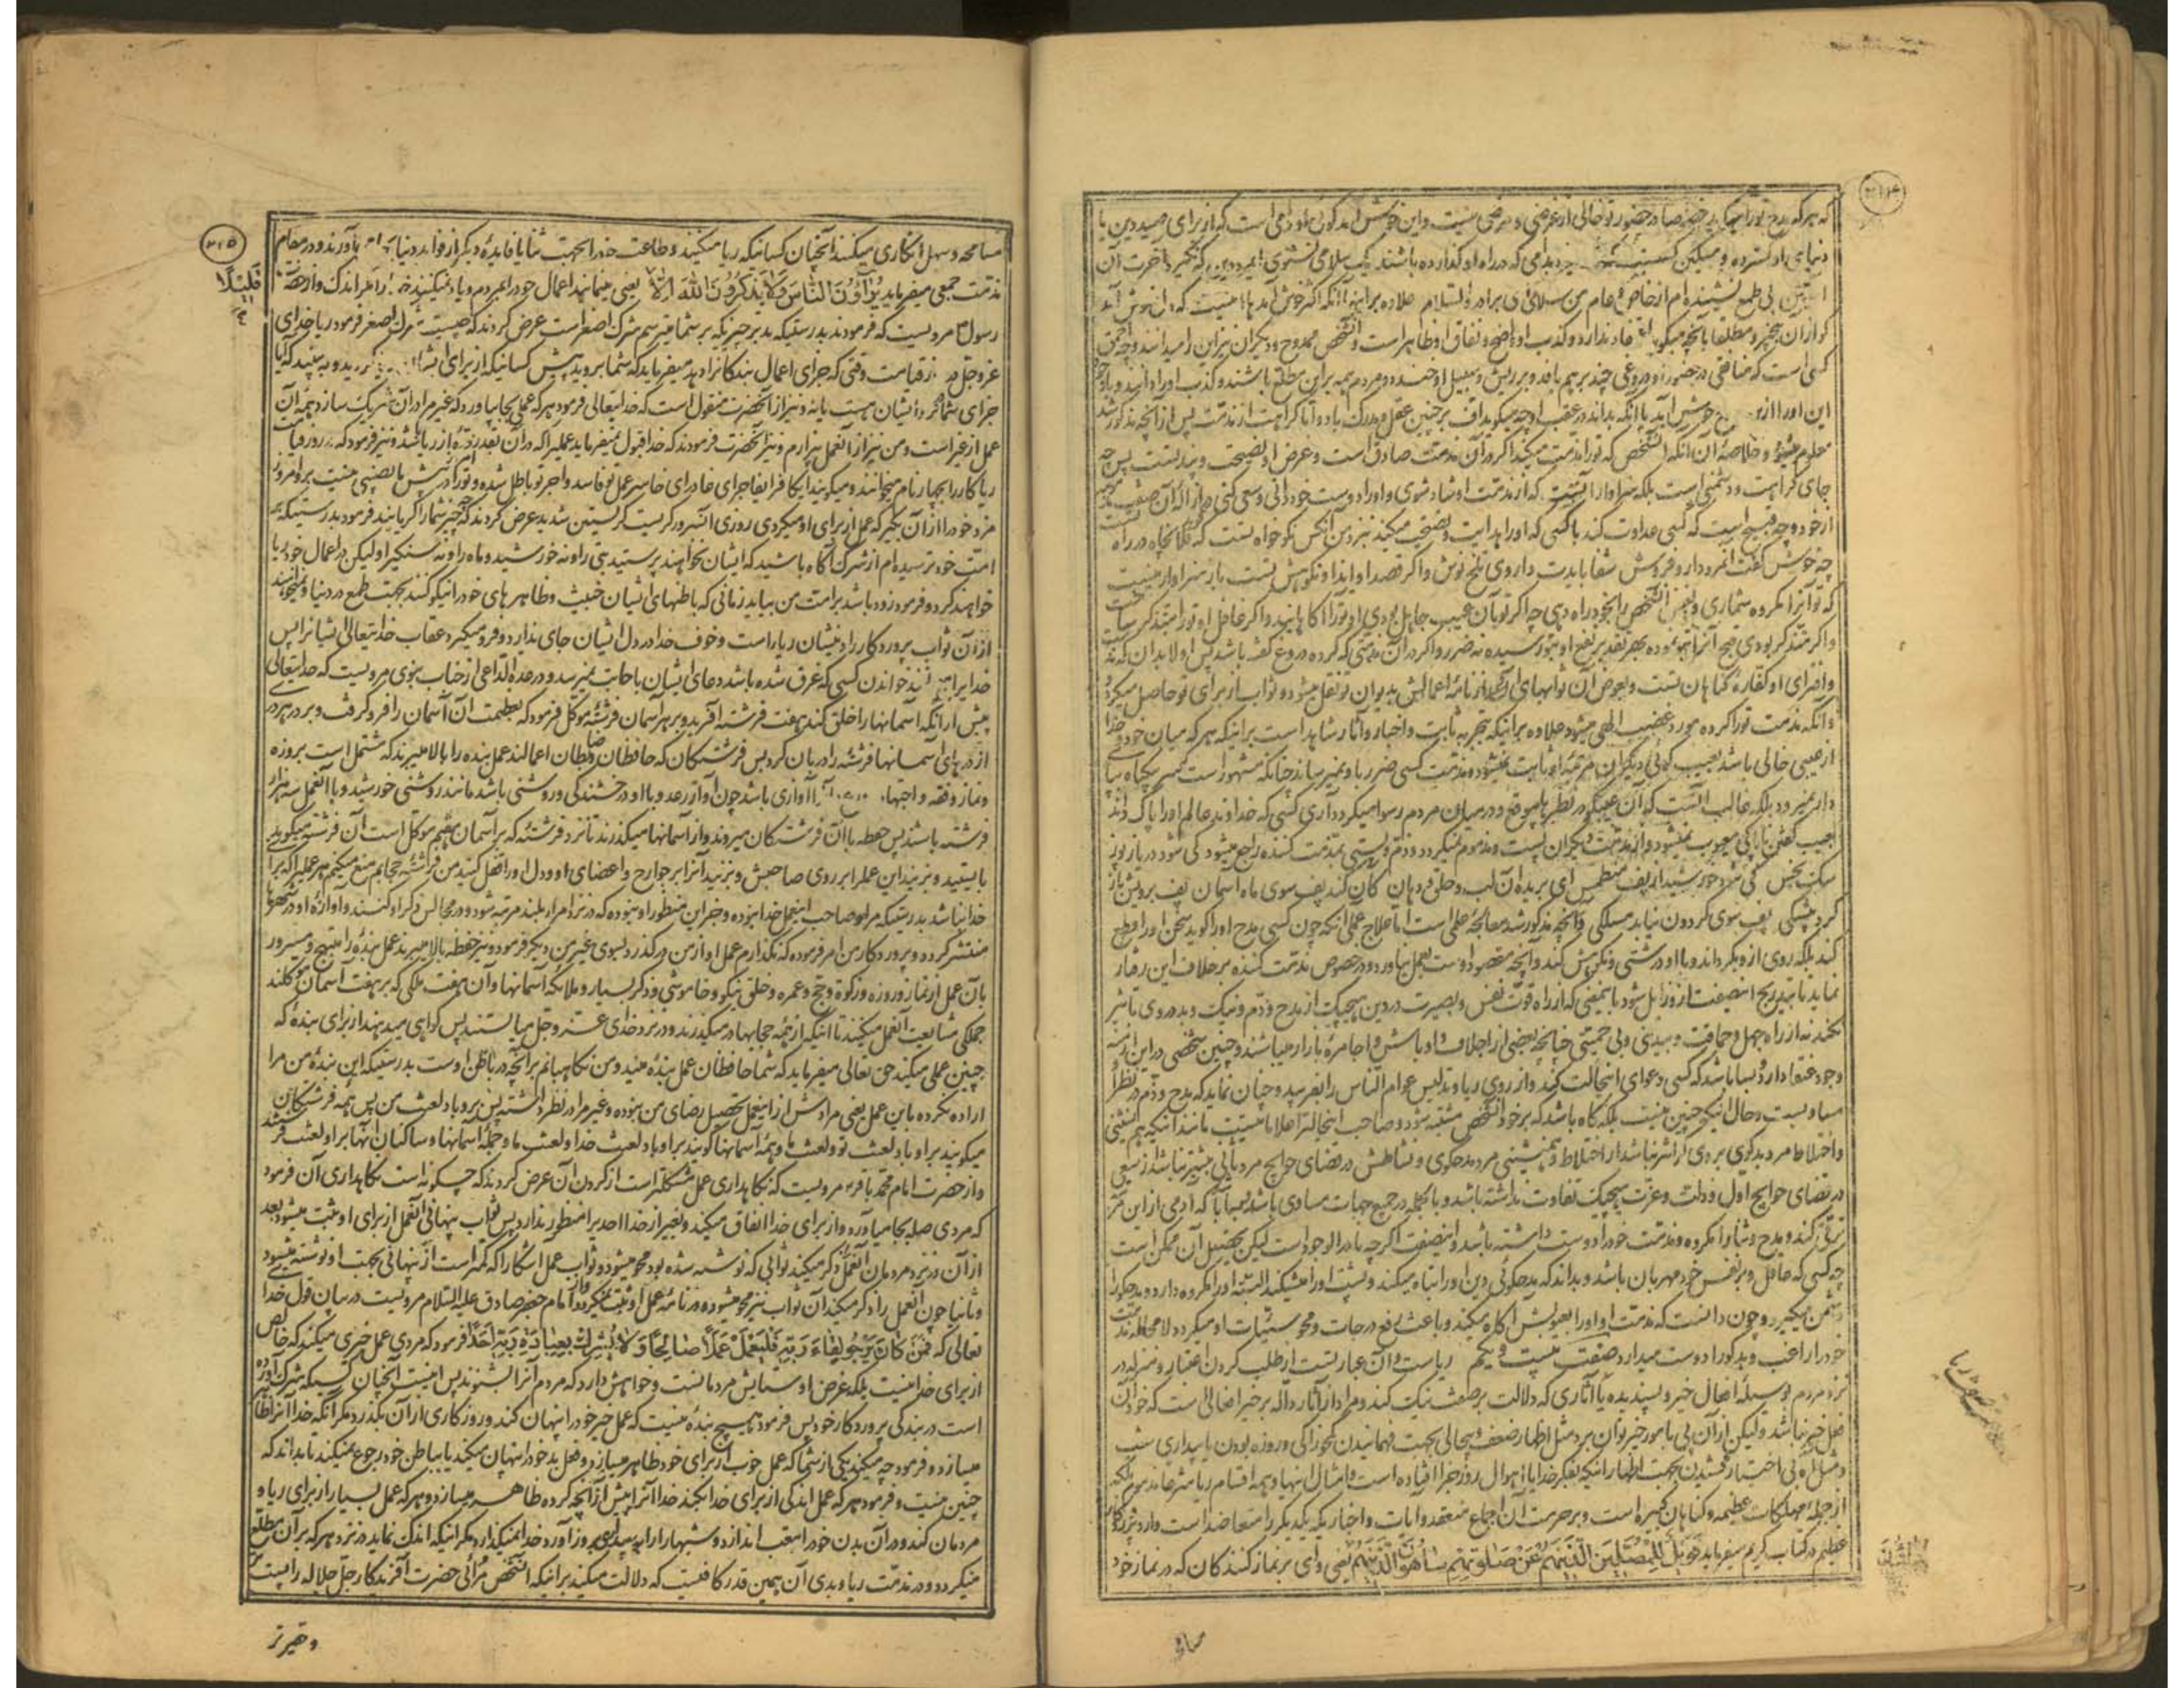 ۲۱۴
که هرکه مدح تو را میگوید خصوصا در حضور تو خالی از غرضی و مرضی نیست و این خوش آمد گوئی او دامی است که از برای صید دین یا
دنیای او گسترده و مسکین کسیست که خرد بدامی که در راه او گذارده باشند یک سلامی نشنوی ای مرد دین که نگیرد آخرت آن
آستین بی طمع نشنیده ام از خاص و عام من سلامی ای برادر والسلام علاوه بر اینها آنکه اکثر خوش آمدها
گویان بهیچ چیز و مطلقا بآنچه میگویند اعتقاد ندارد و کذب او واضح و نفاق او ظاهر است و آن شخص ممدوح و دیگران نیز این را میدانند و چه احمق
کسی است که منافقی در حضور او دروغی چند بر هم بافد و بر ریش و سبیل او خندد و مردم همه بر این مطلع باشند و کذب او را دانند و با وجود
این او را از مدح خوش آید با آنکه بداند در عقب او چه میگوید اف بر چنین عقل و مدرک باد و اما کراهت از مذمت پس از آنچه مذکور شد
معلوم میشود و خلاصه آن آنکه آن شخص که تو را مذمت میکند اگر در آن مذمت صادق است و غرض او نصیحت و پند تست پس چه
جای کراهت و دشمنی است بلکه سزاوار آنست که از مذمت او شاد شوی و او را دوست خود دانی و سعی کنی در ازاله آن صفت
از خود و چه قبیح است که کسی عداوت کند با کسی که او را هدایت و نصیحت میکند نزد من آنکس نکو خواه تست که گوید فلان چاه در راه
چه خوش گفت آنمرد دارو فروش شفا بایدت داروی تلخ نوش و اگر قصد او ایذا و نکوهش تست باز سزاوار نیست
که تو آنرا مکروه شماری و بغض آن شخص را بخود راه دهی چه اگر تو بآن عیب جاهل بودی او تو را آگاهانید و اگر غافل او تو را متذکر ساخت
و اگر متذکر بودی قبح آنرا بتو نموده بهر تقدیر نفع او بتو رسیده نه ضرر و اگر در آن مذمتی که کرده دروغ گفته باشد پس اولا بدان که مذمت
و افترای او کفاره گناهان تست و بعوض آن ثوابهای او از نامه اعمالش بدیوان تو نقل میشود و ثواب از برای تو حاصل میگردد
و آنکه مذمت تو را کرده مورد غضب الهی میشود علاوه بر اینکه بتجربه ثابت و اخبار و آثار شاهد است بر اینکه هر که میان خود و خدا
از عیبی خالی باشد بعیب گوئی دیگران مرتبه او ثابت نمیشود و مذمت کسی ضرر باو نمیرساند چنانکه مشهور است سر بیگناه بپای
دار نمیرود بلکه غالب آنست که آن عیبگو در نظرها بی موقع و در میان مردم رسوا میگردد آری کسی که خداوند عالم او را پاک داند
بعیب گفتن ناپاکی معیوب نمیشود و از مذمت دیگران پست و مذموم نمیگردد و ذم و پستی بمذمت کننده راجع میشود کی شود دریا ز پوز
سگ نجس کی شود خورشید از پف منطمس ای بریده آن لب و حلق و دهان کان کند پف سوی ماه آسمان پف برویش باز
گردد بیشکی پف سوی گردون نیابد مسلکی و آنچه مذکور شد معالجه علمی است اما علاج عملی آنکه چون کسی مدح او را گوید سخن او را قطع
کند بلکه روی از او بگرداند و با او درشتی و نکوهش کند و آنچه مقصود اوست بعمل نیاورد و در خصوص مذمت کننده بر خلاف این رفتار
نماید تا بتدریج این صفت از او زایل شود باینمعنی که از راه قوت نفس و بصیرت در دین هیچیک از مدح و ذم و نیک و بد در وی تاثیر
نکند نه از راه جهل و حماقت و بیدینی و بی حمیتی چنانچه بعضی از اجلاف و اوباش و اجامره بازار میباشند و چنین شخصی در این ازمنه
وجود عنقا دارد و بسا باشد که کسی دعوای این حالت کند و از روی ریا و تدلیس عوام الناس را بفریبد و چنان نماید که مدح و ذم در نظر او
مساویست و حال اینکه چنین نیست بلکه گاه باشد که بر خود آن شخص مشتبه شود و صاحب این حالت را علاماتیست مانند اینکه همنشینی
و اختلاط مرد بدگوی بر وی گرانتر نباشد از اختلاط و همنشینی مرد مدحگوی و نشاطش در قضای حوایج مرد ثانی بیشتر نباشد از سعی
در قضای حوایج اول و ذلت و عزت هیچیک تفاوت نداشته باشد و بالجمله در جمیع جهات مساوی باشند و بسا باشد که آدمی از این مرتبه
ترقی کند و مدح و ثنا را مکروه و مذمت خود را دوست داشته باشد و این صفت اگرچه نادر الوجود است لیکن تحصیل آن ممکن است
چه کسی که عاقل و بر نفس خود مهربان باشد و بداند که مدحگوئی دین او را تباه میکند و پشت او را میشکند البته او را مکروه دارد و مدحگو را
دشمن میگیرد و چون دانست که مذمت او او را بعیوبش آگاه میکند و باعث رفع درجات و محو سیئات او میگردد لا محاله مذمت
خود را راغب و بدگو را دوست میدارد صفت بیست و یکم ریاست و آن عبارتست از طلب کردن اعتبار و منزله در
نزد مردم بوسیله افعال خیر و پسندیده یا آثاری که دلالت بر صفت نیک کند و مراد از آثار داله بر خیر افعالی است که خود آن
فعل خیر نباشد ولیکن از آن پی بامور خیر توان برد مثل اظهار ضعف و بیحالی بجهت فهمانیدن کم خوراکی و روزه بودن یا بیداری شب
و مثل آه بی اختیار کشیدن بجهت اظهار اینکه بفکر خدا یا احوال روز جزا افتاده است و امثال اینها و همه اقسام ریا شرعا مذموم بلکه
از جمله مهلکات عظیمه و گناهان کبیره است و بر حرمت آن اجماع منعقد و آیات و اخبار یکدیگر را متعاضد است و
عظیم در کتاب کریم میفرماید فَوَیْلٌ لِلْمُصَلِّینَ الَّذِینَ هُمْ عَنْ صَلوتِهِمْ ساهُونَ الَّذِینَ هُمْ یعنی وای بر نماز کنندگان که در نماز خود
۲۱۵
مسامحه و سهل انگاری میکنند آنچنان کسانیکه ریا میکنند و طاعت خود را بجهت ثنا یا فایده دیگر از فواید دنیا بجا می آورند و در مقام
مذمت جمعی میفرماید یُراؤُنَ النّاسَ وَلا یَذْکُرُونَ اللهَ اِلّا یعنی مینمایند اعمال خود را بمردم و یاد نمیکنند خدا را مگر اندک و از حضرت
قَلیلًا
رسول ص مرویست که فرمودند بدرستیکه بدترین چیزیکه بر شما میترسم شرک اصغر است عرض کردند که چیست شرک اصغر فرمود ریا خدای
عز و جل در روز قیامت وقتی که جزای اعمال بندگانرا دهد میفرماید که شما بروید پیش کسانیکه از برای ایشان ریا میکردید و به بینید که آیا
جزای شما نزد ایشان هست یا نه و نیز از آنحضرت منقول است که خدایتعالی فرمود هر که عملی بجا بیاورد که غیر مرا در آن شریک سازد همه آن
عمل از غیر است و من نیز از آن عمل بیزارم و نیز آنحضرت فرمودند که خدا قبول نمیفرماید عملیرا که در آن بقدر ذره از ریا باشد و نیز فرمود که در روز قیامت
ریاکار را بچهار نام میخوانند و میگویند ای کافر ای فاجر ای غادر ای خاسر عمل تو فاسد و اجر تو باطل شده و تو را در پیش ما نصیبی نیست برو امروز
مزد خود را از آن بگیر که عمل از برای او میکردی روزی آنسرور گریست گریستن شدید عرض کردند که چه چیز شما را گریانید فرمود بدرستیکه بر
امت خود ترسیده ام از شرک آگاه باشید که ایشان نخواهند پرستید بتی را و نه خورشید و ماه را و نه سنگی را ولیکن در اعمال خود ریا
خواهند کرد و فرمود زود باشد بر امت من بیاید زمانی که باطنهای ایشان خبیث و ظاهرهای خود را نیکو کنند بجهت طمع در دنیا و نمیخواهند
از آن ثواب پروردگار را دینشان ریا است و خوف خدا در دل ایشان جای ندارد و فرو میگیرد عقاب خدایتعالی ایشانرا پس
خدا را میخوانند خواندن کسی که غرق شده باشد دعای ایشان باجابت نمیرسد و در عدة الداعی از جناب نبوی مرویست که خدایتعالی
پیش از آنکه آسمانها را خلق کند هفت فرشته آفرید و بر هر آسمان فرشته موکل فرمود که بعظمت آن آسمان را فرو گرفت و بر در هر در
از درهای آسمانها فرشته را دربان کرد پس فرشتگان که حافظان و ضابطان اعمالند عمل بنده را بالا میبرند که مشتمل است بروزه
و نماز و فقه و اجتهاد و آنرا آوازی باشد چون آواز رعد و با او درخشندگی و روشنی باشد مانند روشنی خورشید و با آن عمل سه هزار
فرشته باشند پس حفظه با آن فرشتگان میروند و از آسمانها میگذرند تا نزد فرشته که بر آسمان هفتم موکل است آن فرشته میگوید
بایستید و بزنید این عمل را بر روی صاحبش و بزنید آنرا بر جوارح و اعضای او و دل او را قفل کنید من فرشته حجابم منع میکنم هر عملیرا که برای
خدا نباشد بدرستیکه مراد صاحب این عمل خدا نبوده و جز این منظور او نبوده که در نزد امرا بلند مرتبه شود و در مجالس ذکر او کنند و آوازه او در شهرها
منتشر گردد و پروردگار من امر فرموده که نگذارم عمل او از من درگذرد بسوی غیر من و دیگر فرمود و نیز حفظه بالا میبرند عمل بنده را مبتهج و مسرور
بآن عمل از نماز و روزه و زکوة و حج و عمره و خلق نیکو و خاموشی و ذکر بسیار و ملائکه آسمانها و آن هفت ملکی که بر هفت آسمان موکلند
جملگی مشایعت آن عمل میکنند تا آنکه از همه حجابها درمیگذرند و در نزد خدای عز و جل می ایستند پس گواهی میدهند از برای بنده که
چنین عملی میکند حق تعالی میفرماید که شما حافظان عمل بنده منید و من نگاهبانم بر آنچه در باطن اوست بدرستیکه این بنده من مرا
اراده نکرده باین عمل یعنی مرادش از این عمل تحصیل رضای من نبوده و غیر مرا در نظر داشته پس بر او باد لعنت من پس همه فرشتگان
میگویند بر او باد لعنت تو و لعنت ما و همه آسمانها گویند بر او باد لعنت خدا و لعنت ما و جمله آسمانها و ساکنان آنها بر او لعنت فرستند
و از حضرت امام محمد باقر ع مرویست که نگاهداری عمل مشکلتر است از کردن آن عرض کردند که چگونه است نگاهداری آن فرمود
که مردی صله بجا می آورد و از برای خدا انفاق میکند و بغیر از خدا احدیرا منظور ندارد پس ثواب پنهانی آن عمل از برای او ثبت میشود بعد
از آن در نزد مردمان آن عمل را ذکر میکند ثوابی که نوشته شده بود محو میشود و ثواب عمل آشکارا که کمتر است از پنهانی بجهت او نوشته میشود
و ثانیا چون آن عمل را ذکر میکند آن ثواب نیز محو میشود و در نامه عمل او ثبت میگردد و از امام جعفر صادق علیه السلام مرویست در بیان قول خدا
تعالی که فَمَنْ کانَ یَرْجُو لِقاءَ رَبِّهِ فَلْیَعْمَلْ عَمَلًا صالِحًا وَلا یُشْرِكْ بِعِبادَةِ رَبِّهِ اَحَدًا فرمود که مردی عمل خیری میکند که خالص
از برای خدا نیست بلکه غرض او ستایش مردمانست و خواهش دارد که مردم آنرا بشنوند پس اینست آنچنان کسیکه شرک آورده
است در بندگی پروردگار خود پس فرمود هیچ بنده نیست که عمل خیر خود را پنهان کند و روزگاری از آن بگذرد مگر آنکه خدا آنرا ظاهر
میسازد و فرمود چه میکند یکی از شما که عمل خوب از برای خود ظاهر میسازد و عمل بد خود را پنهان میکند آیا بباطن خود رجوع نمیکند تا بداند که
چنین نیست و فرمود هر که عمل اندکی از برای خدا بکند خدا آنرا بیش از آنچه کرده ظاهر میسازد و هر که عمل بسیار از برای ریا و
مردمان کند و در آن بدن خود را بتعب اندازد و شبها را به بیداری بروز آورد خدا نمیگذارد مگر اینکه اندک نماید در نزد هر که بر آن مطلع
میگردد و در مذمت ریا و بدی آن همین قدر کافیست که دلالت میکند بر اینکه آن شخص مرائی حضرت آفریدگار جل جلاله را پست
و حقیرتر